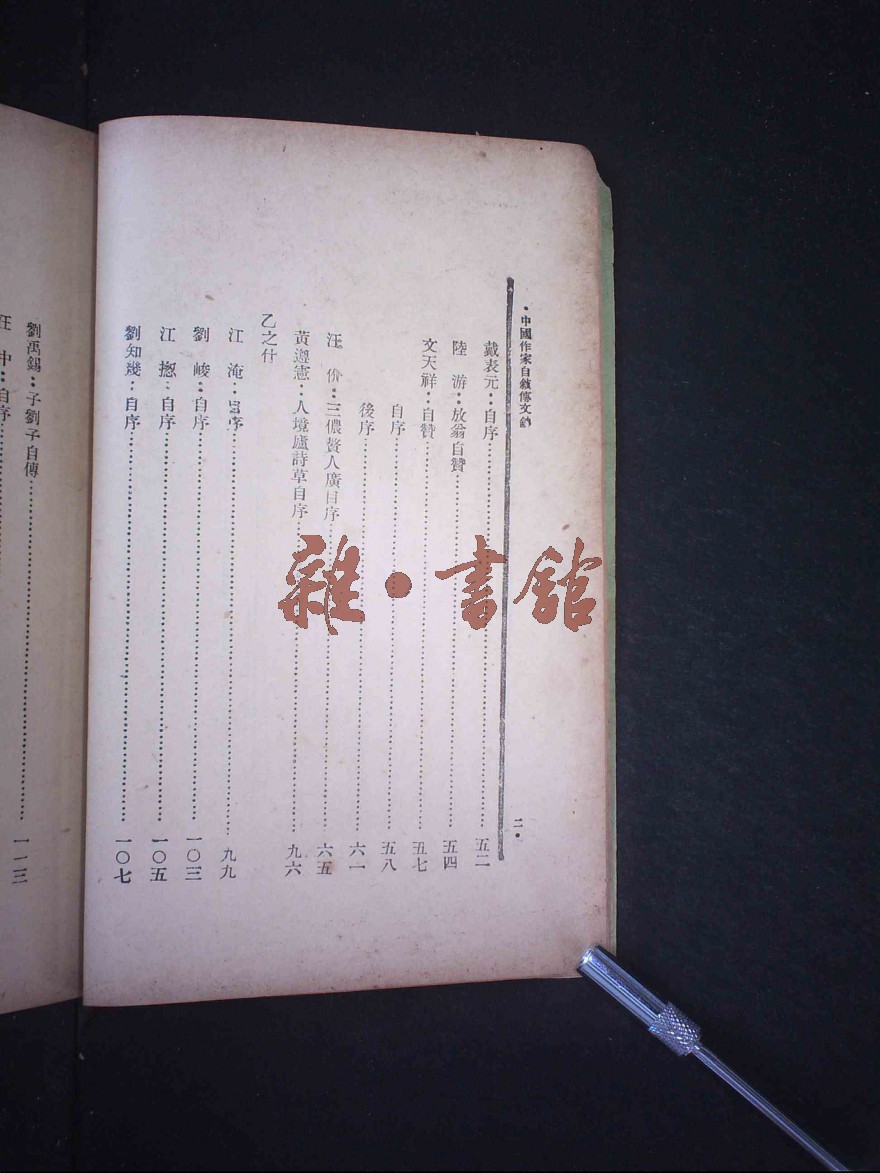 •中國作家自敘傳文鈔
二•
戴表元：自序……五二
陸　游：放翁自贊……五四
文天祥：自贊……五七
自序……五八
後序……六一
汪　价：三儂贅人廣自序……六五
黃遵憲：人境廬詩草自序……九六
乙之什
江　淹：自序……九九
劉　峻：自序……一〇三
江　摠：自序……一〇五
劉知幾：自序……一〇七
劉禹錫：子劉子自傳……一一三
汪　中：自序……
雜•書館